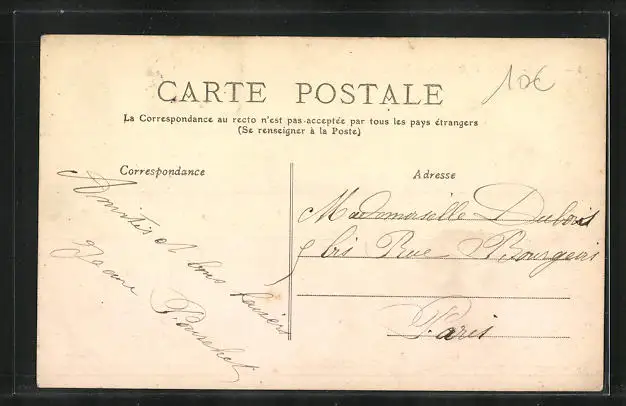 CARTE POSTALE
10€
La Correspondance au recto n'est pas acceptée par tous les pays étrangers
(Se renseigner à la Poste)
Correspondance
Amitiés et bons baisers
Jeanne
Adresse
Mademoiselle Dubois
bis Rue Bourgeois
Paris